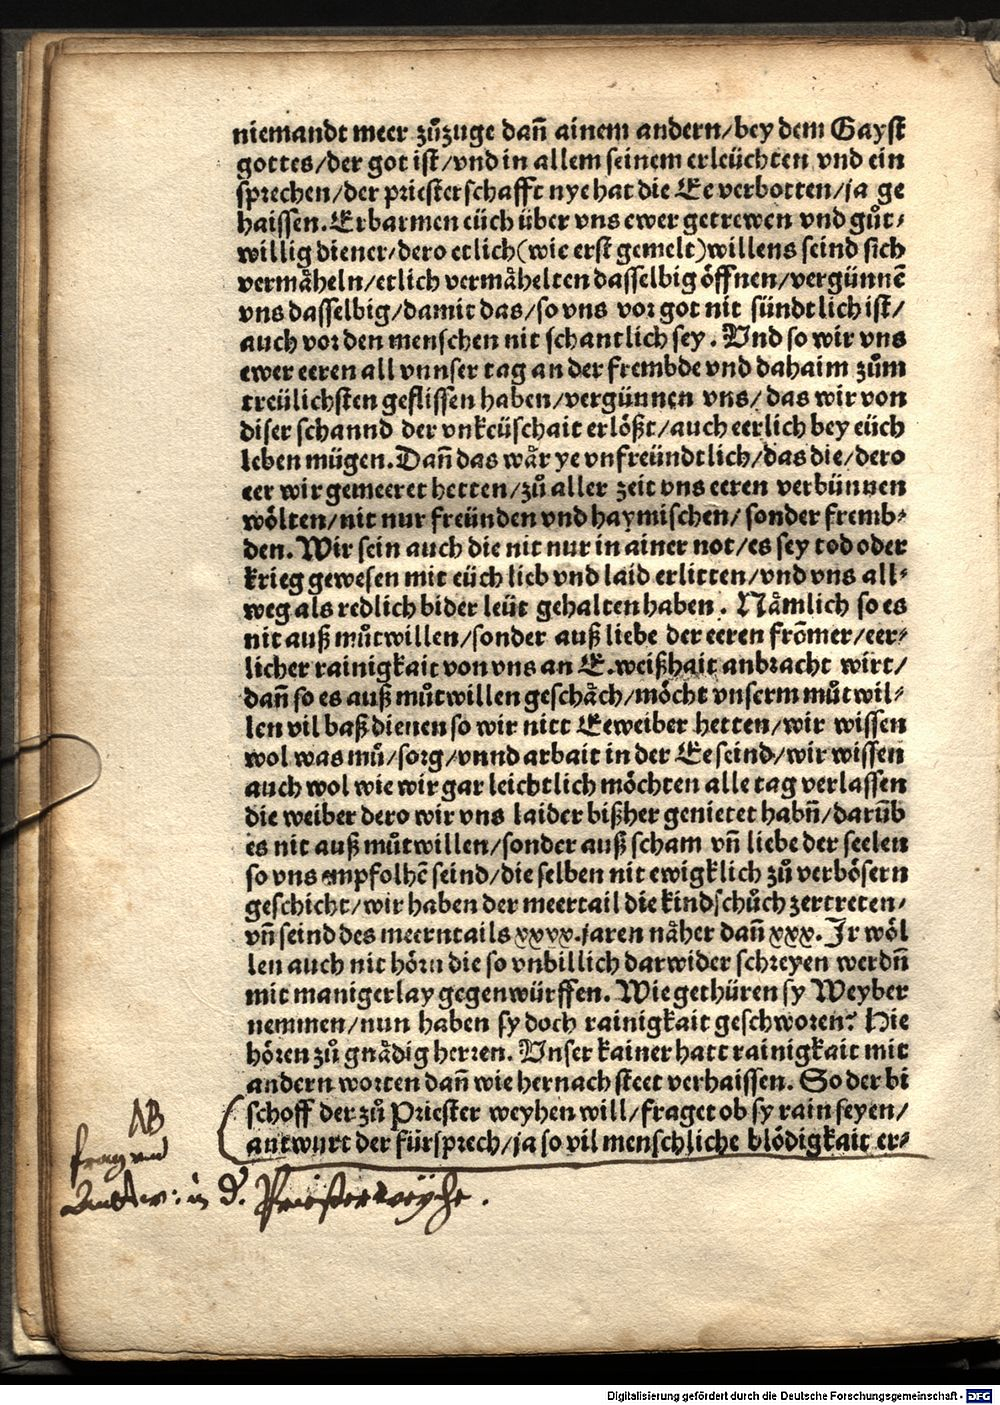 niemandt meer zůzuge dañ ainem andern/bey dem Gayst
gottes/der got ist/vnd in allem seinem erleüchten vnd ein
sprechen/der priesterschafft nye hat die Ee verbotten/ja ge
haissen. Erbarmen eüch über vns ewer getrewen vnd gůt⸗
willig diener/dero etlich (wie erst gemelt) willens seind sich
vermåheln/etlich vermåhelten dasselbig öffnen/vergünnē
vns dasselbig/damit das/so vns vor got nit sündtlich ist/
auch vor den menschen nit schantlich sey. Vnd so wir vns
ewer eeren all vnnser tag an der frembde vnd dahaim zům
treülichsten geflissen haben/vergünnen vns/das wir von
diser schannd der vnkeüschait erlößt/auch eerlich bey eüch
leben mügen. Dañ das wår ye vnfreündtlich/das die/dero
eer wir gemeeret hetten/zů aller zeit vns eeren verbünnen
wölten/nit nur freünden vnd haymischen/sonder fremb⸗
den. Wir sein auch die nit nur in ainer not/es sey tod oder
krieg gewesen mit eüch lieb vnd laid erlitten/vnd vns all⸗
weg als redlich bider leüt gehalten haben. Nåmlich so es
nit auß můtwillen/sonder auß liebe der eeren frōmer/eer⸗
licher rainigkait von vns an E. weißhait anbracht wirt/
dañ so es auß můtwillen geschåch/möcht vnserm můtwil⸗
len vil baß dienen so wir nitt Eeweiber hetten/wir wissen
wol was mů/sorg/vnnd arbait in der Ee seind/wir wissen
auch wol wie wir gar leichtlich möchten alle tag verlassen
die weiber dero wir vns laider bißher genietet habñ/darūb
es nit auß můtwillen/sonder auß scham vñ liebe der seelen
so vns empfolhē seind/die selben nit ewigklich zů verbösern
geschicht/wir haben der meertail die kindschůch zertreten/
vñ seind des meerntails xxxx. jaren nåher dañ xxx. Ir wöl
len auch nit hörn die so vnbillich darwider schreyen werdñ
mit manigerlay gegenwürffen. Wie gethüren sy Weyber
nemmen/nun haben sy doch rainigkait geschworen? Hie
hören zů gnådig herren. Vnser kainer hatt rainigkait mit
andern worten dañ wie hernach steet verhaissen. So der bi
schoff der zů Priester weyhen will/fraget ob sy rain seyen/
antwurt der fürsprech/ja so vil menschliche blödigkait er⸗
NB
frag vnd
Antw: in d. Priesterweyhe.
Digitalisierung gefördert durch die Deutsche Forschungsgemeinschaft - DFG